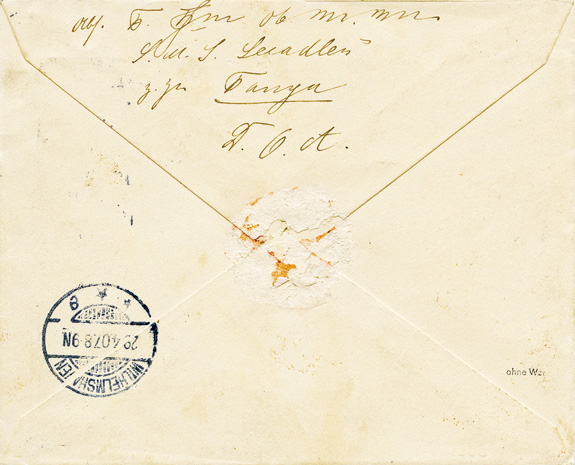 S. M. S. Seeadler
z. Zt. Tanga
D. O. A.
WILHELMSHAVEN
29.4.07.8-9N
* e
ohne We